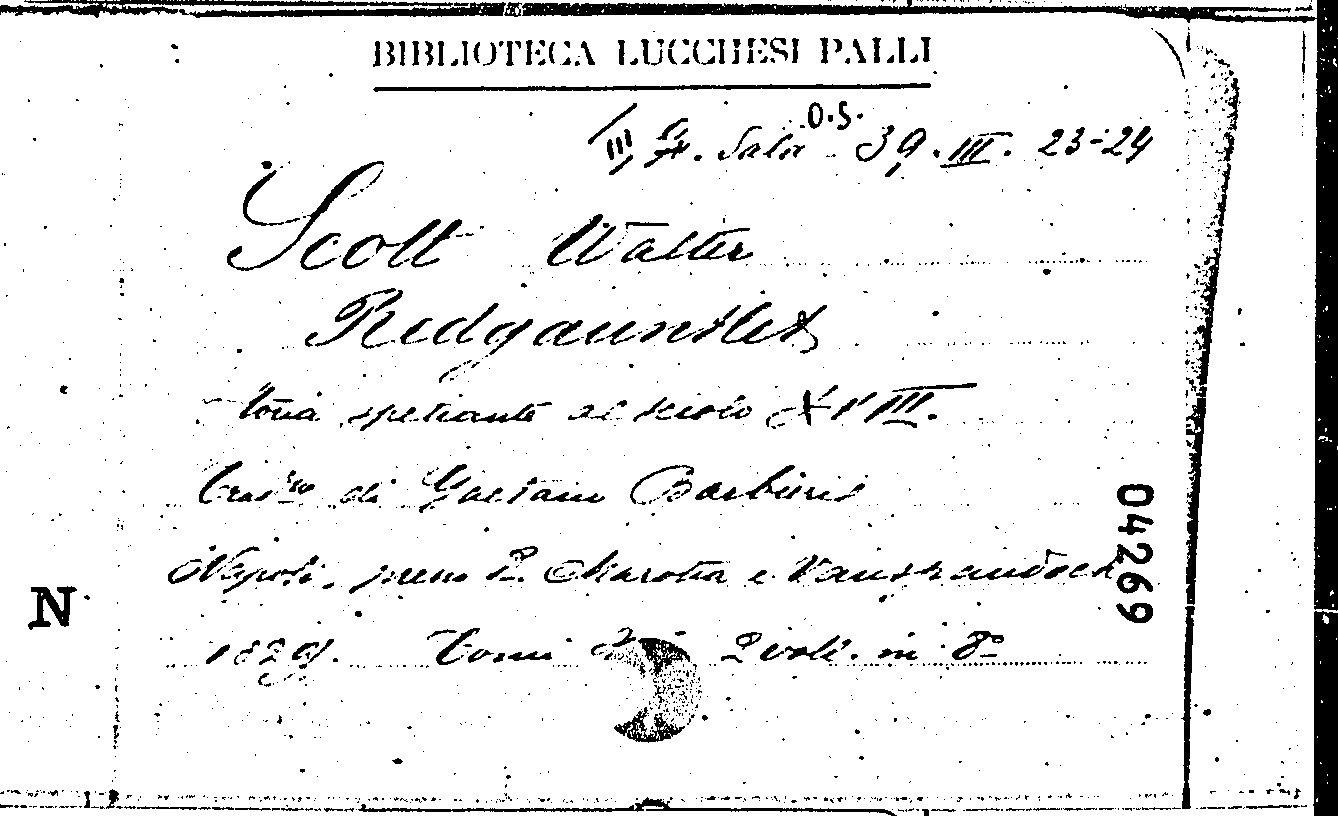 BIBLIOTECA LUCCHESI PALLI
O.S.
III, Sala 39. III. 23-24
Scott Walter
Redgauntlet
storia spettante al secolo XVIII.
di Gaetano Barbieri
Napoli, presso R. Marotta e Vanspandoch
1829. Tomi 2 voll. in 8º
04269
N